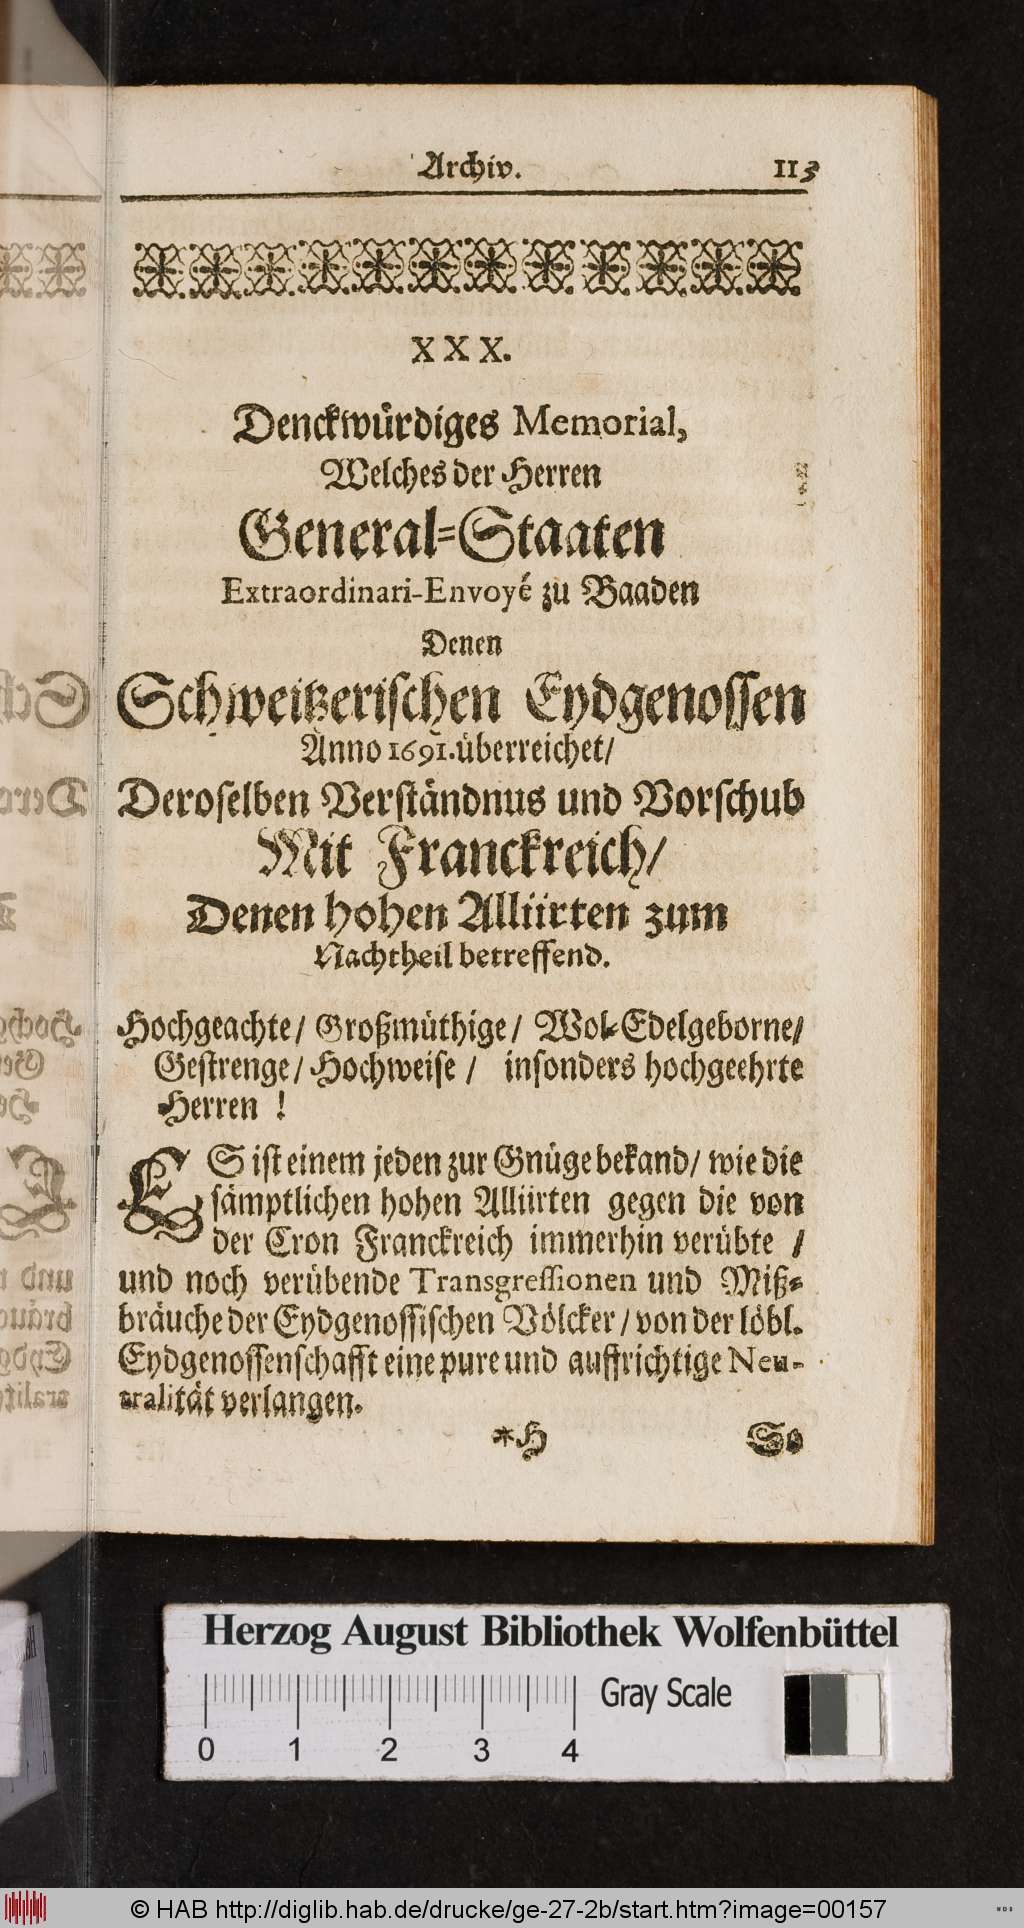 Archiv. 113
XXX.
Denckwürdiges Memorial,
Welches der Herren
General-Staaten
Extraordinari-Envoyé zu Baaden
Denen
Schweitzerischen Eydgenossen
Anno 1691. überreichet/
Deroselben Verständnus und Vorschub
Mit Franckreich/
Denen hohen Alliirten zum
Nachtheil betreffend.
Hochgeachte/ Großmüthige/ Wol-Edelgeborne/
Gestrenge/ Hochweise / insonders hochgeehrte
Herren !
ES ist einem jeden zur Gnüge bekand/ wie die
sämptlichen hohen Alliirten gegen die von
der Cron Franckreich immerhin verübte /
und noch verübende Transgressionen und Miß-
bräuche der Eydgenossischen Völcker / von der löbl.
Eydgenossenschafft eine pure und auffrichtige Neu-
tralität verlangen.
*H So
Herzog August Bibliothek Wolfenbüttel
Gray Scale
0 1 2 3 4
© HAB http://diglib.hab.de/drucke/ge-27-2b/start.htm?image=00157